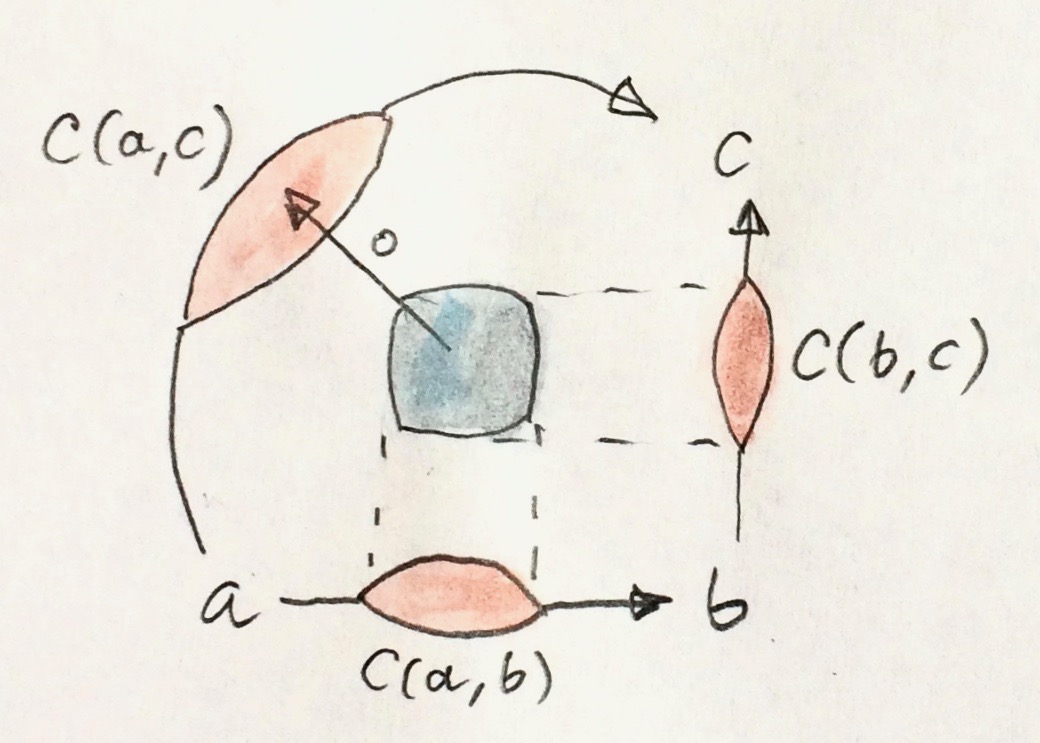 C(a,c)
c
∘
C(b,c)
a
b
C(a,b)